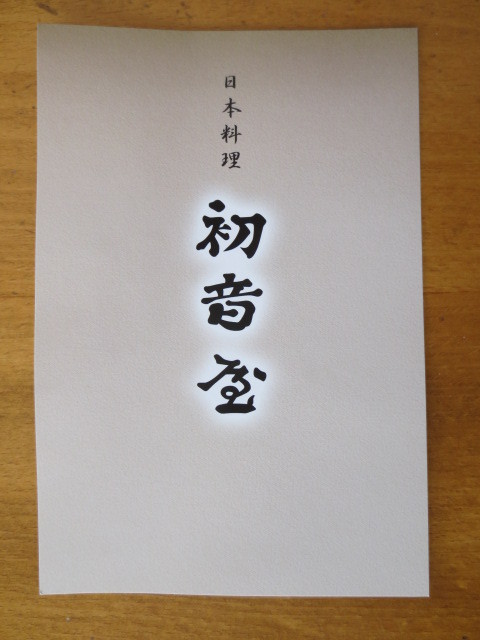 日本料理
初音屋